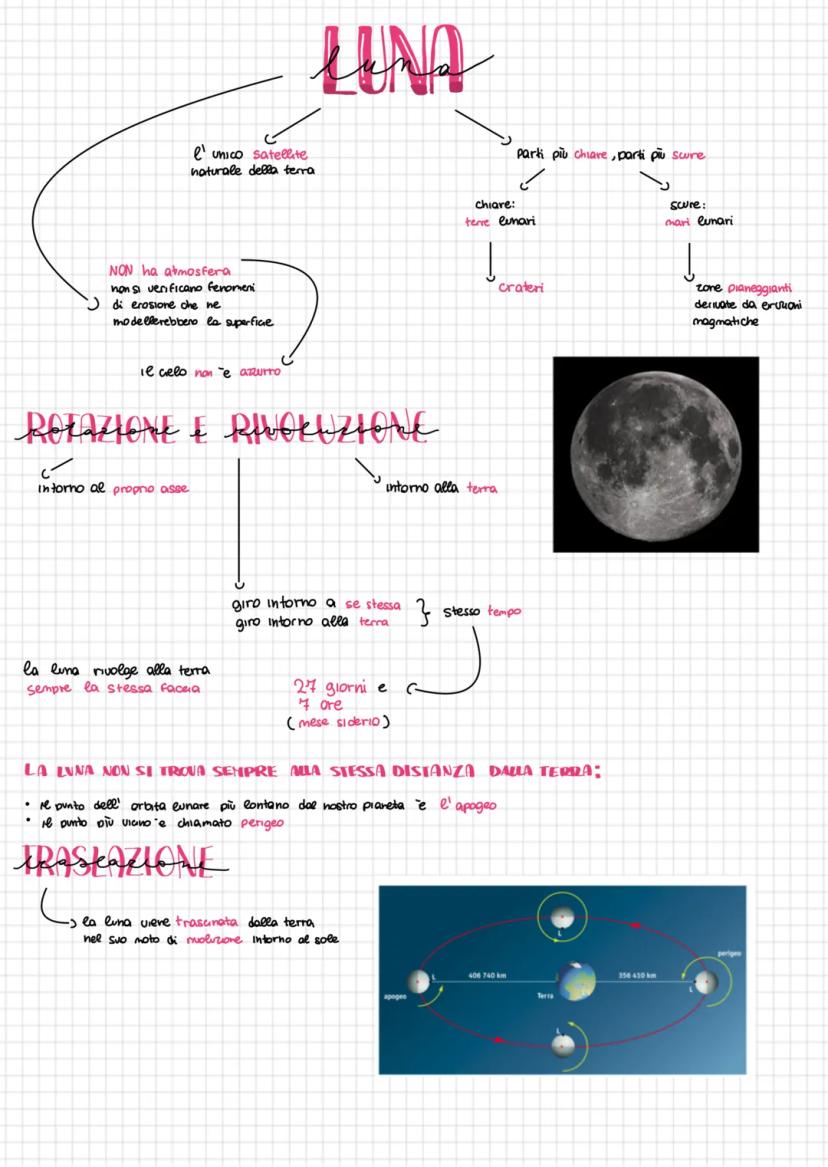 LUNA
luna
l' unico satellite
naturale della terra
parti più chiare, parti più scure
chiare:
terre lunari
scure:
mari lunari
crateri
zone pianeggianti
derivate da eruzioni
magmatiche
NON ha atmosfera
non si verificano fenomeni
di erosione che ne
modellerebbero la superficie
il cielo non è azzurro
ROTAZIONE E RIVOLUZIONE
rotazione e rivoluzione
intorno al proprio asse
intorno alla terra
giro intorno a se stessa
giro intorno alla terra
} stesso tempo
la luna rivolge alla terra
sempre la stessa faccia
27 giorni e
7 ore
(mese siderio)
LA LUNA NON SI TROVA SEMPRE ALLA STESSA DISTANZA DALLA TERRA:
• il punto dell' orbita lunare più lontano dal nostro pianeta è l'apogeo
• il punto più vicino è chiamato perigeo
TRASLAZIONE
traslazione
la luna viene trascinata dalla terra
nel suo moto di rivoluzione intorno al sole
L
perigeo
L
406 740 km
356 410 km
L
apogeo
Terra
L